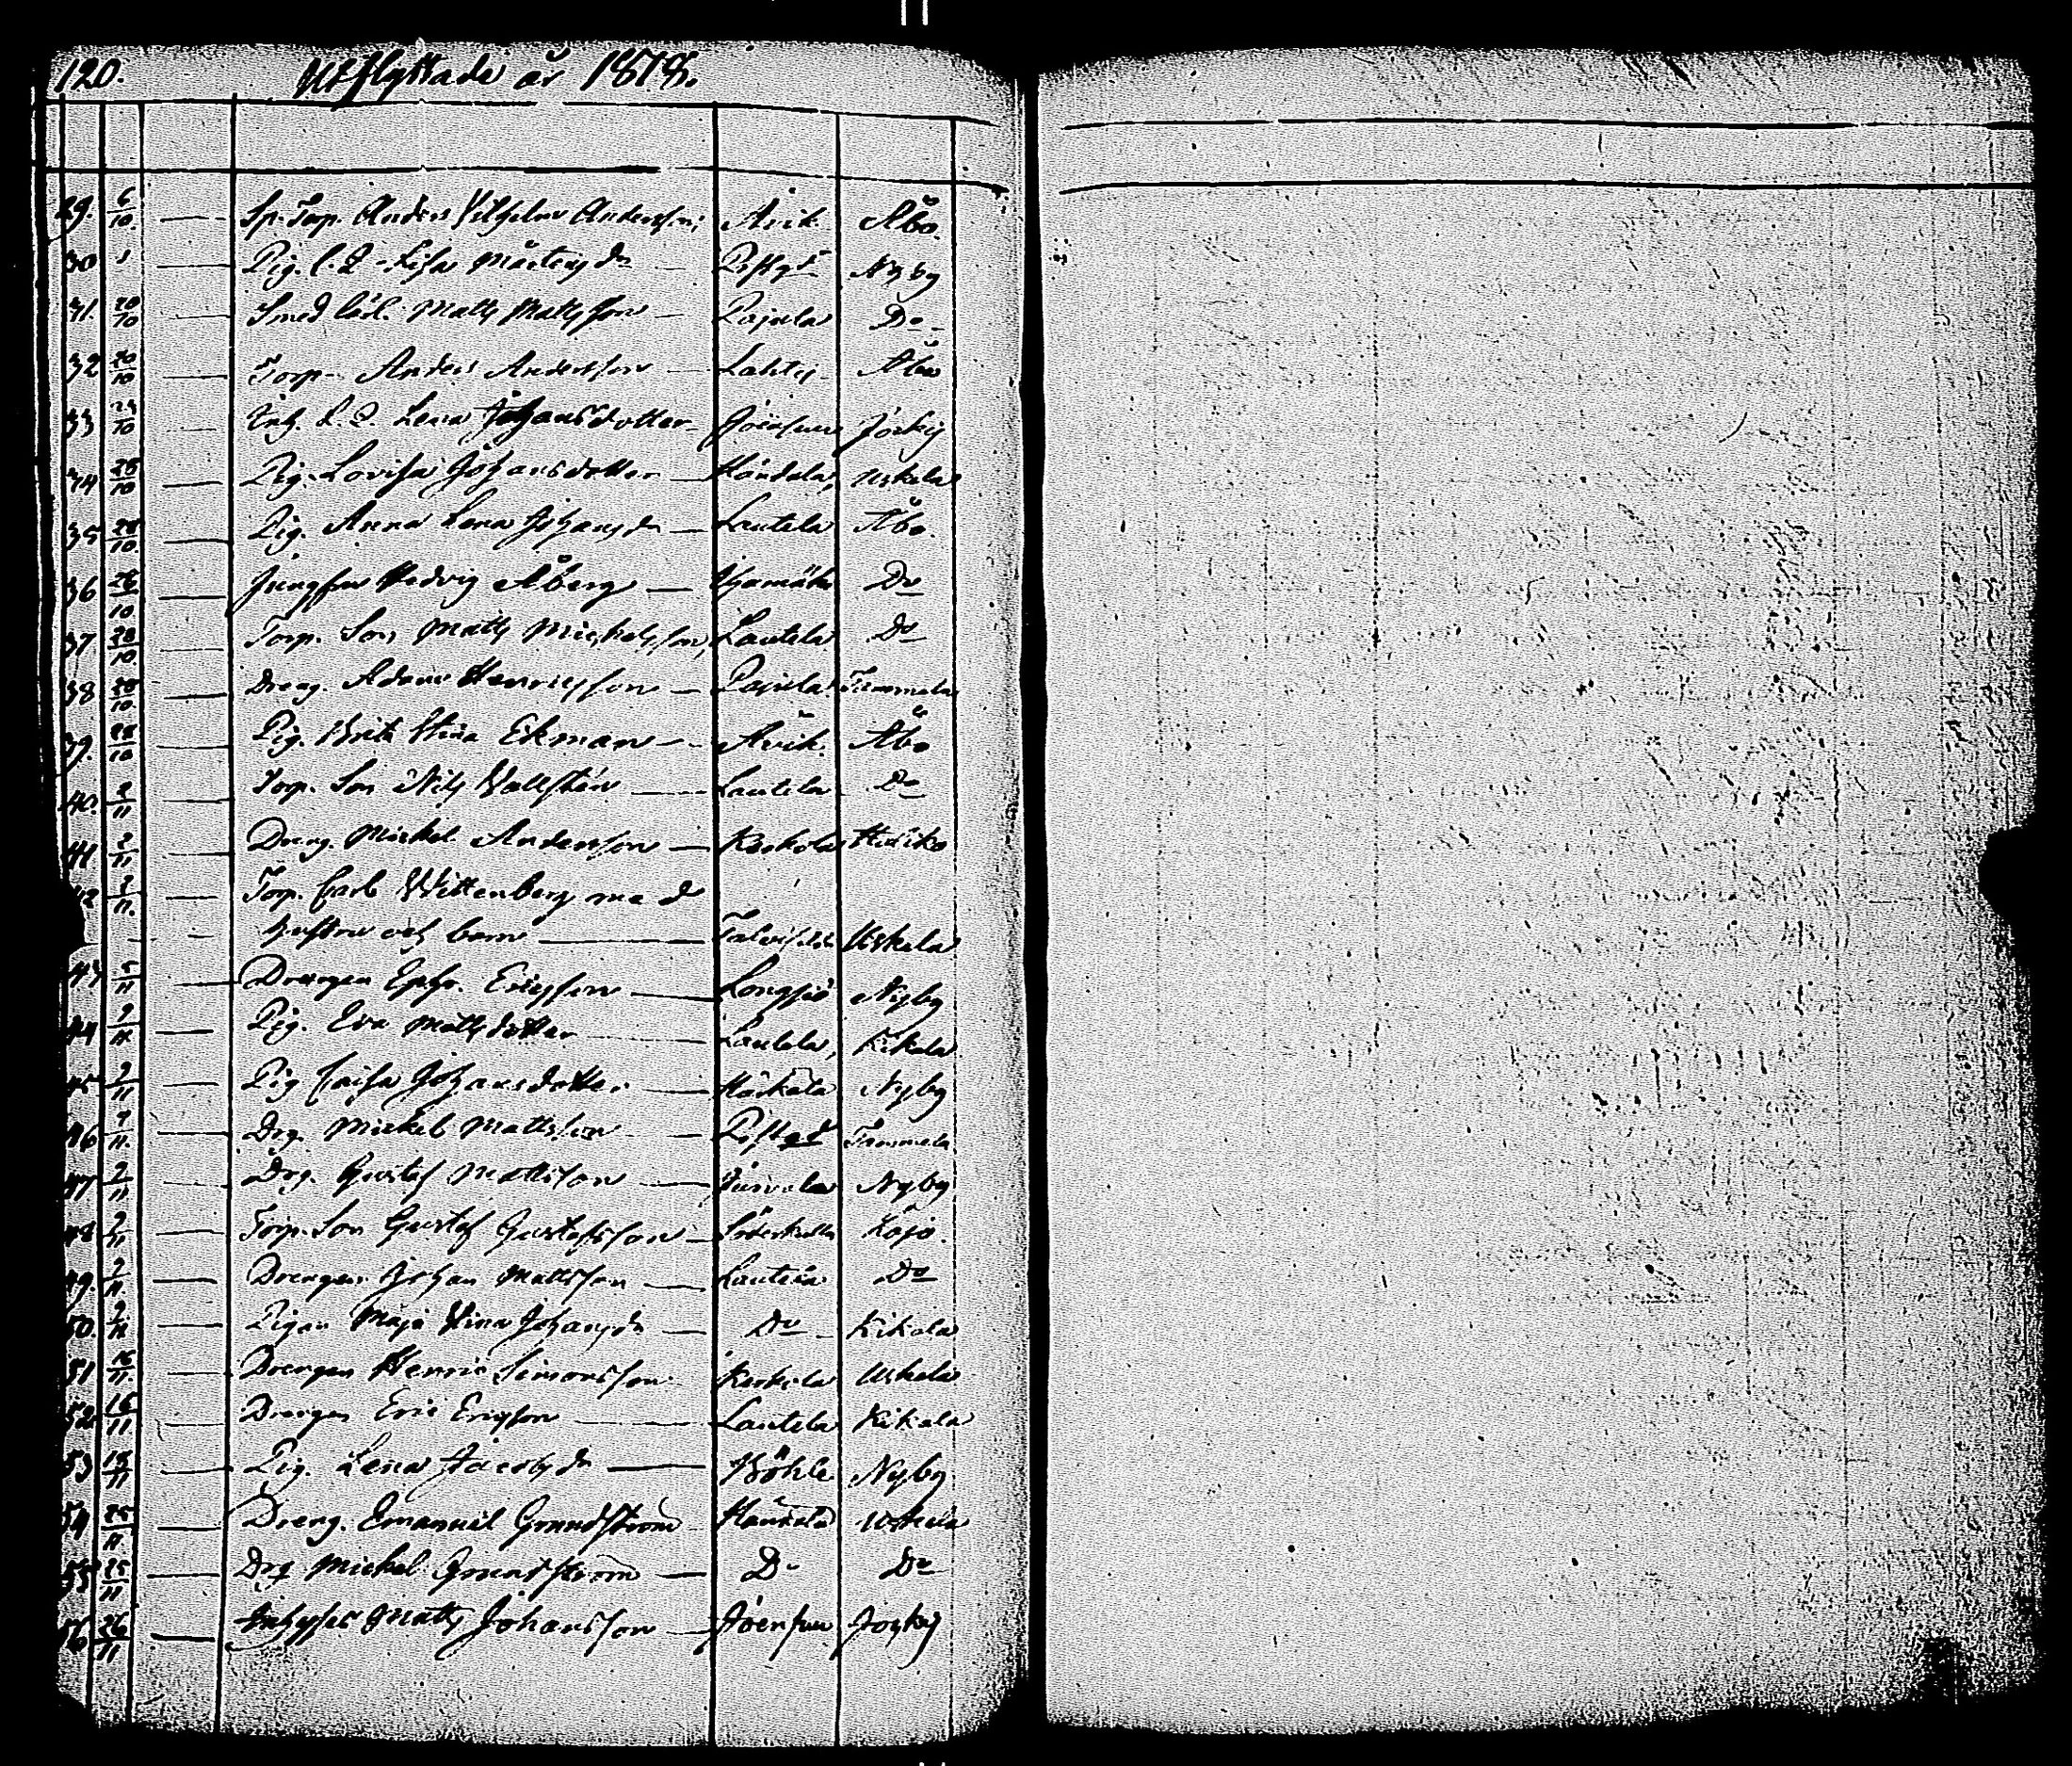 120. Utflyttade år 1878.
29. 6/10 — Sp. Torp. Anders Vilhelm Andersson, Åvik. Åbo.
30 — Pig. Lisa Mårtensdr — Prstgd Nyby
31. 20/10 — Smed lärl. Matts Mattsson — Pajula Do
32 20/10 — Torp. Anders Andersson — Lahty Åbo
33 23/10 — Lena Johansdotter Joensuu Jockis
34 28/10 — Pig. Lovisa Johansdotter — Uskela
35 28/10 — Pig. Anna Lena Johansdr — Lautela Åbo.
36 28/10 — Jungfru Hedvig Åberg — Do
37 28/10 — Torp. Son Matts Michelsson, Lautela Do
38 28/10 — Dreng. Adam Henricsson — Pajula Tammela
39. 28/10 — Pig. Brita Stina Ekman — Åvik. Åbo
40. 2/11 — Torp. Son Nils Vallstén — Lautela Do
41 2/11 — Dreng. Mickel Andersson — Koskela Halikko
42 2/11. — Torp. Carl Wittenberg med
hustru och barn — Uskela
43 5/11 — Drengen Ephr. Ericsson — Longsjö Nyby
44 9/11 — Pig. Eva Mattsdotter — Lautela, Kikala
45 9/11 — Pig Caisa Johansdotter — Nyby
46 9/11. — Drg. Mickel Mattsson — Prstgd Tammela
47 9/11 — Drg. Gustaf Mattsson — Nyby
48 9/11 — Torp. Son Gustaf Gustafsson — Söderkulla
49. 9/11. — Drengen Johan Mattsson — Lautela Do
50. 9/11 — Pigan Maja Stina Johansdr — Do Kikala
51 16/11. — Drengen Henric Simonsson Koskela Uskela
52 16/11 — Drengen Eric Ericsson — Lautela Kikala
53 18/11 — Pig. Lena Jacobsdr — Böhle Nyby
54 25/11 — Dreng. Emanuel Grundström Uskela
55 25/11 — Drg Mickel Grundström — Do Do
56 26/11 — Inhyses Matts Johansson — Joensuu Jockis